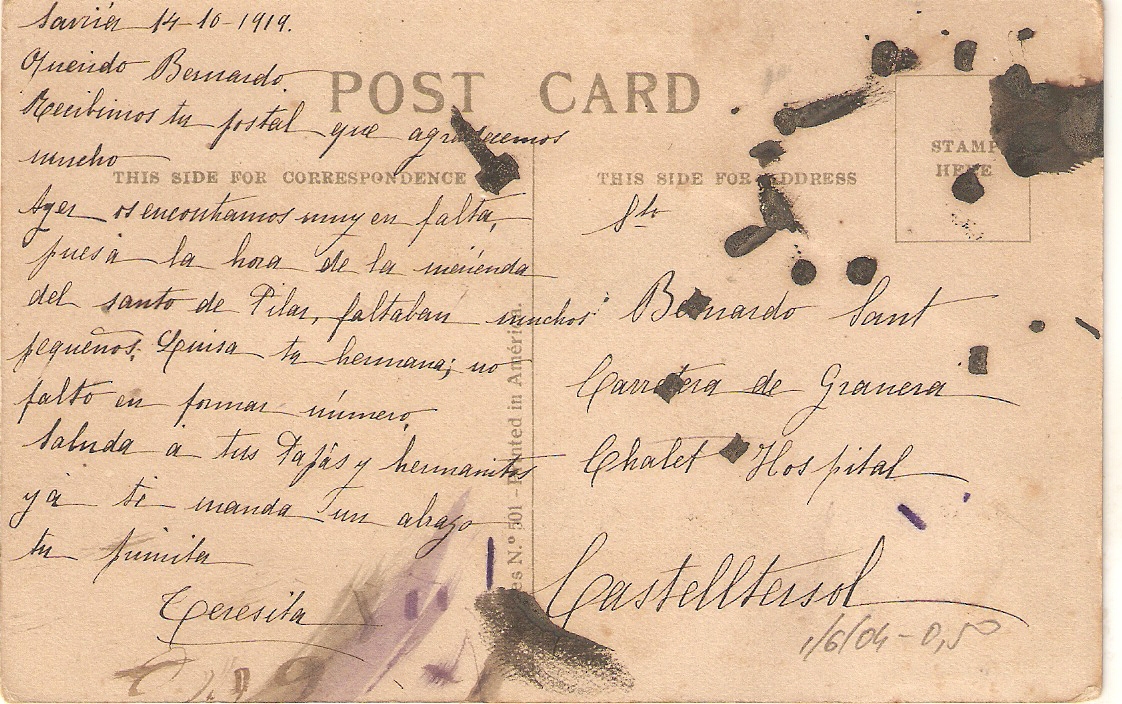 Sarriá 14-10-1919.
Querido Bernardo.
Recibimos tu postal que agradecemos
mucho
Ayer os encontramos muy en falta,
pues a la hora de la merienda
del santo de Pilar, faltaban muchos
pequeños. Luisa tu hermana; no
falto en formar número,
Saluda a tus Papás y hermanitos
y a ti manda un abrazo
tu primita
Teresita
POST CARD
THIS SIDE FOR CORRESPONDENCE
THIS SIDE FOR ADDRESS
STAMP
HERE
es N.º 501 - Printed in América.
Bernardo Sant
Carretera de Granera
Chalet Hospital
Castelltersol
1/6/04 - 0,50